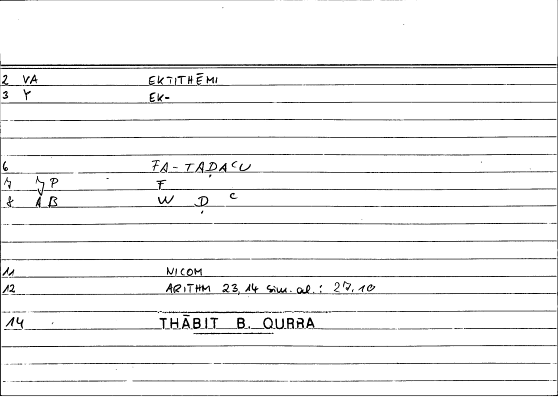 2 VA EKTITHĒMI
3 Y EK-
6 FA-TAḌAʿU
7 P F
8 AB W Ḍ ʿ
11 NICOM
12 ARITHM 23,14 sim. al.: 27,10
14 THĀBIT B. QURRA